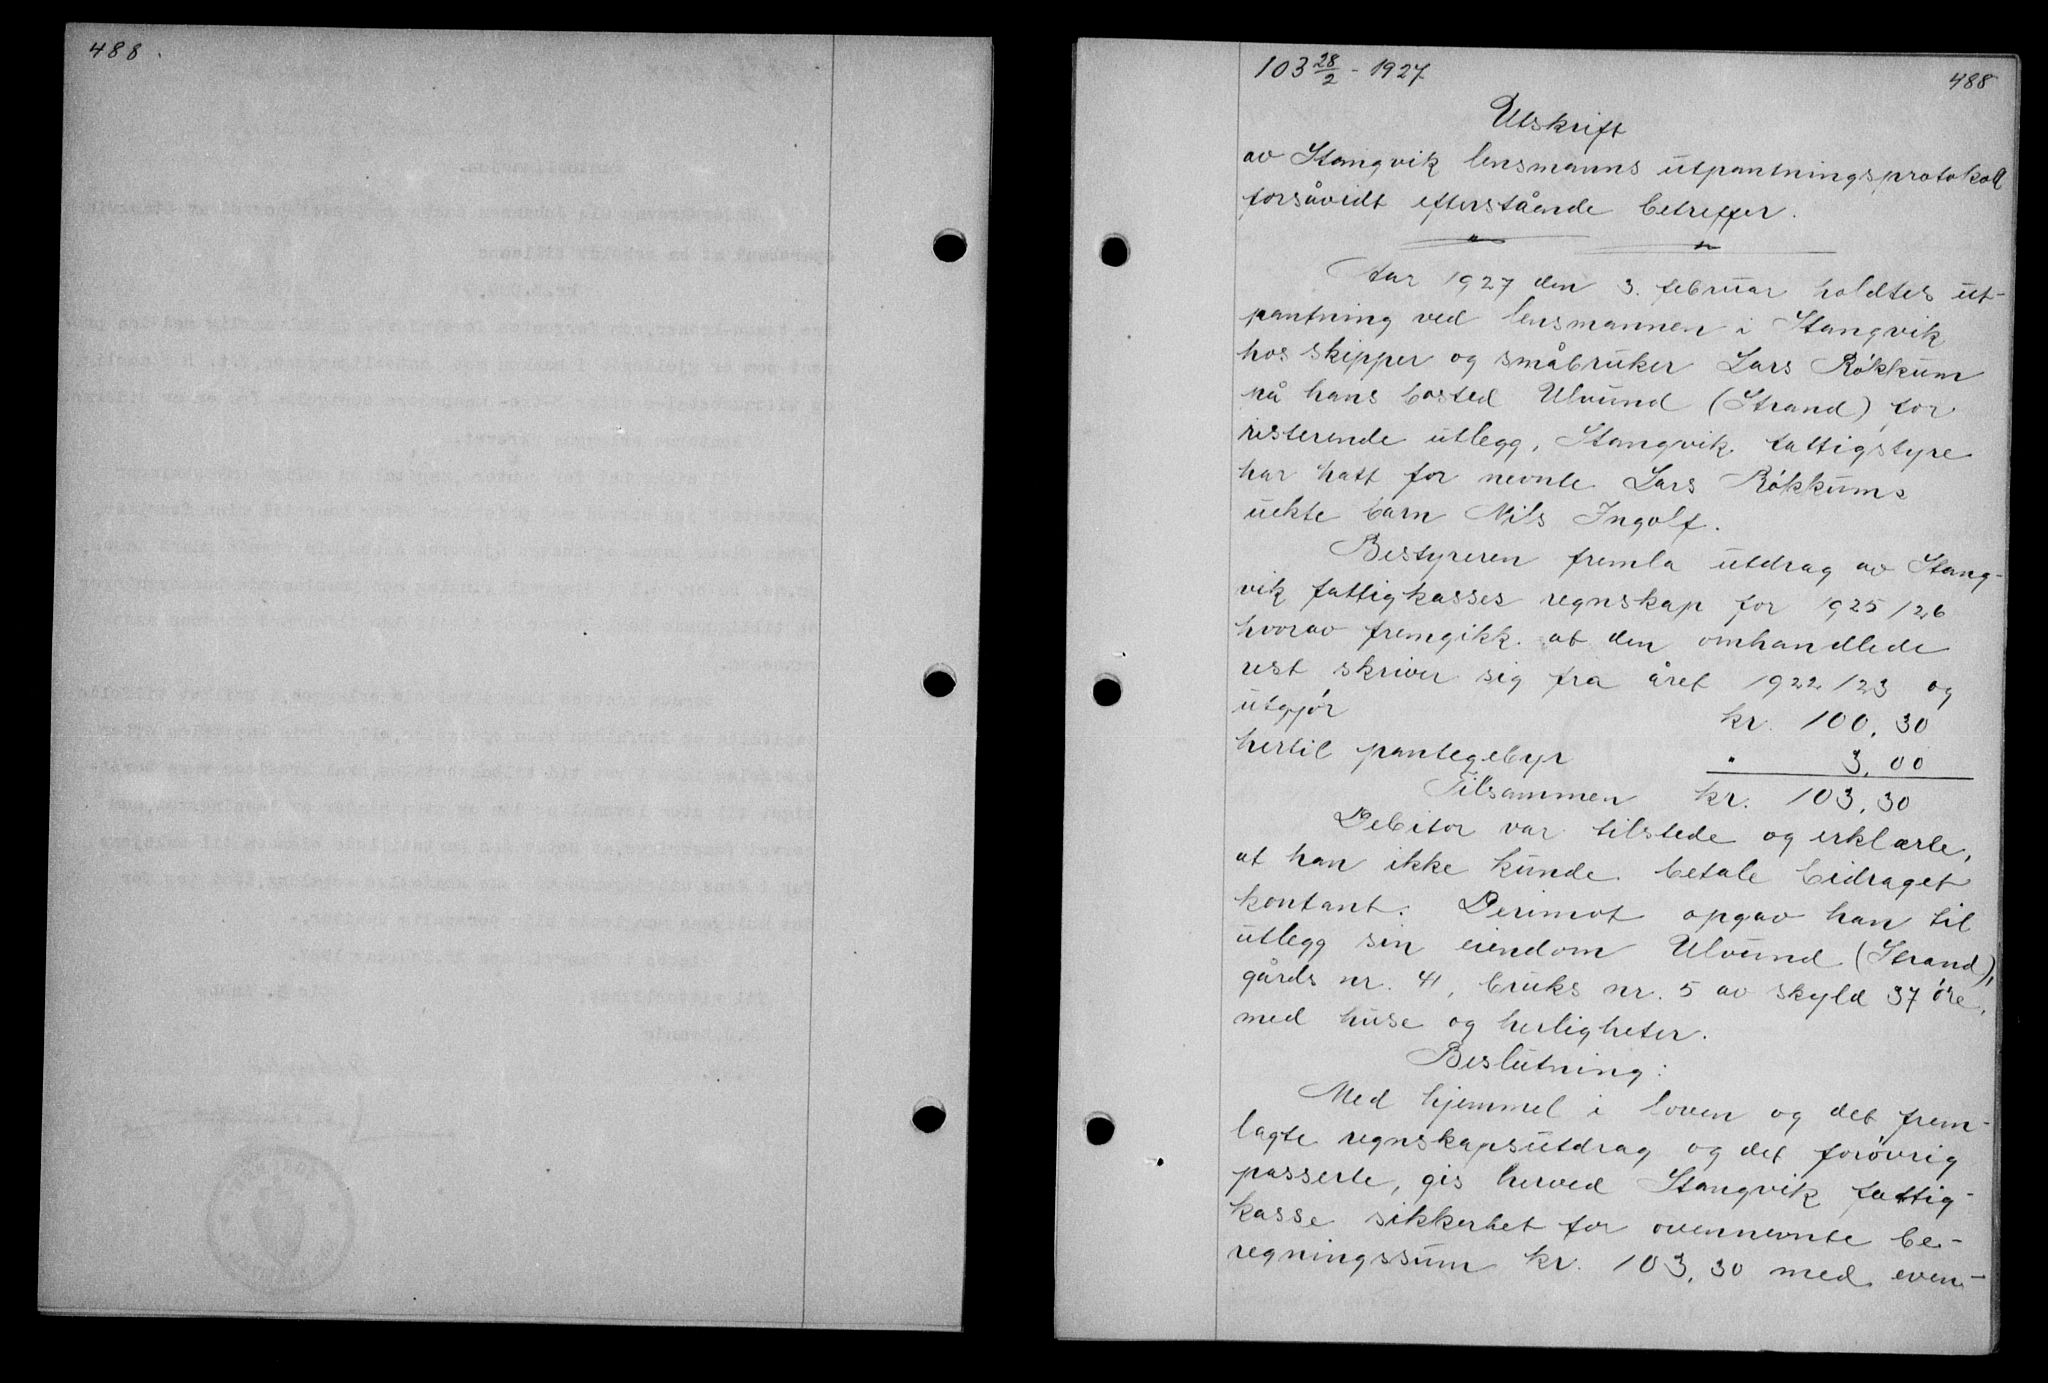 488.
103 28/2 - 1927
488
Utskrift
av Stangvik lensmanns utpantningsprotokoll
forsåvidt efterstående betreffer.
Aar 1927 den 3. februar holdtes ut-
pantning ved lensmannen i Stangvik
hos skipper og småbruker Lars Røkkum
på hans bosted Ulvund (Strand) for
resterende utlegg, Stangvik fattigstyre
har hatt for nevnte Lars Røkkums
uekte barn Nils Ingolf.
Bestyreren fremla utdrag av Stang-
vik fattigkasses regnskap for 1925/26
hvorav fremgikk at den omhandlede
rest skriver sig fra året 1922/23 og
utgjør kr. 100,30
hertil pantegebyr " 3,00
Tilsammen kr. 103,30
Debitor var tilstede og erklærte,
at han ikke kunde betale bidraget
kontant. Derimot opgav han til
utlegg sin eiendom Ulvund (Strand),
gårds nr. 41, bruks nr. 5 av skyld 37 øre,
med huse og herligheter.
Beslutning:
Med hjemmel i loven og det frem-
lagte regnskapsutdrag og det forøvrig
passerte, gis herved Stangvik fattig-
kasse sikkerhet for ovennevnte be-
regningssum kr. 103,30 med even-